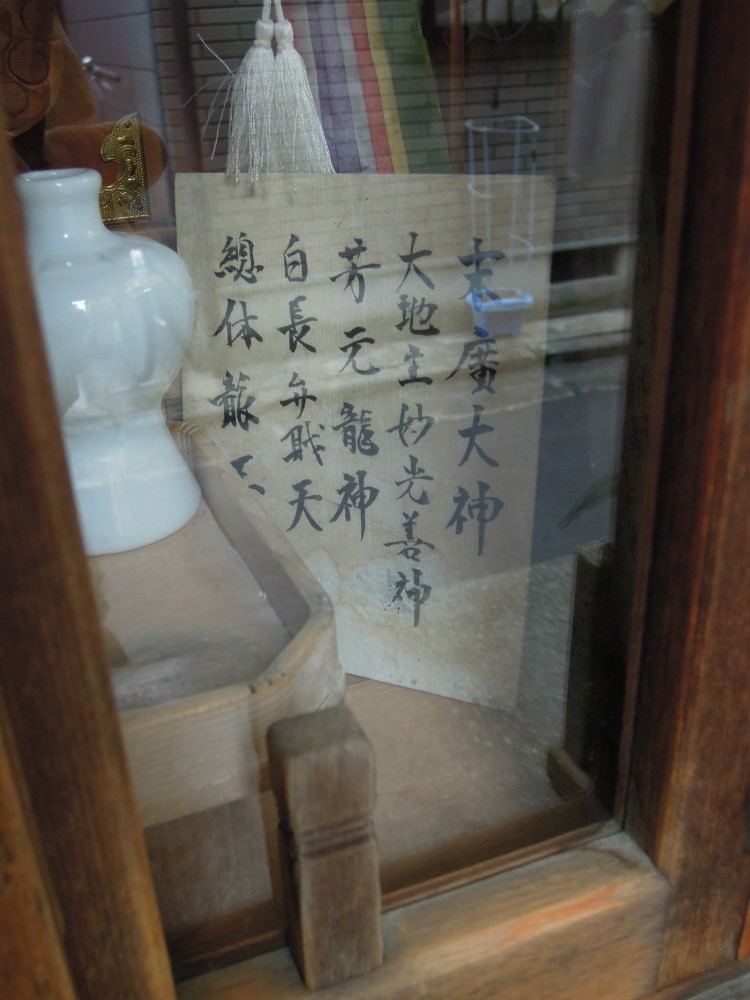 末廣大神
大地主妙光善神
芳元龍神
白長弁戝天
總体龍